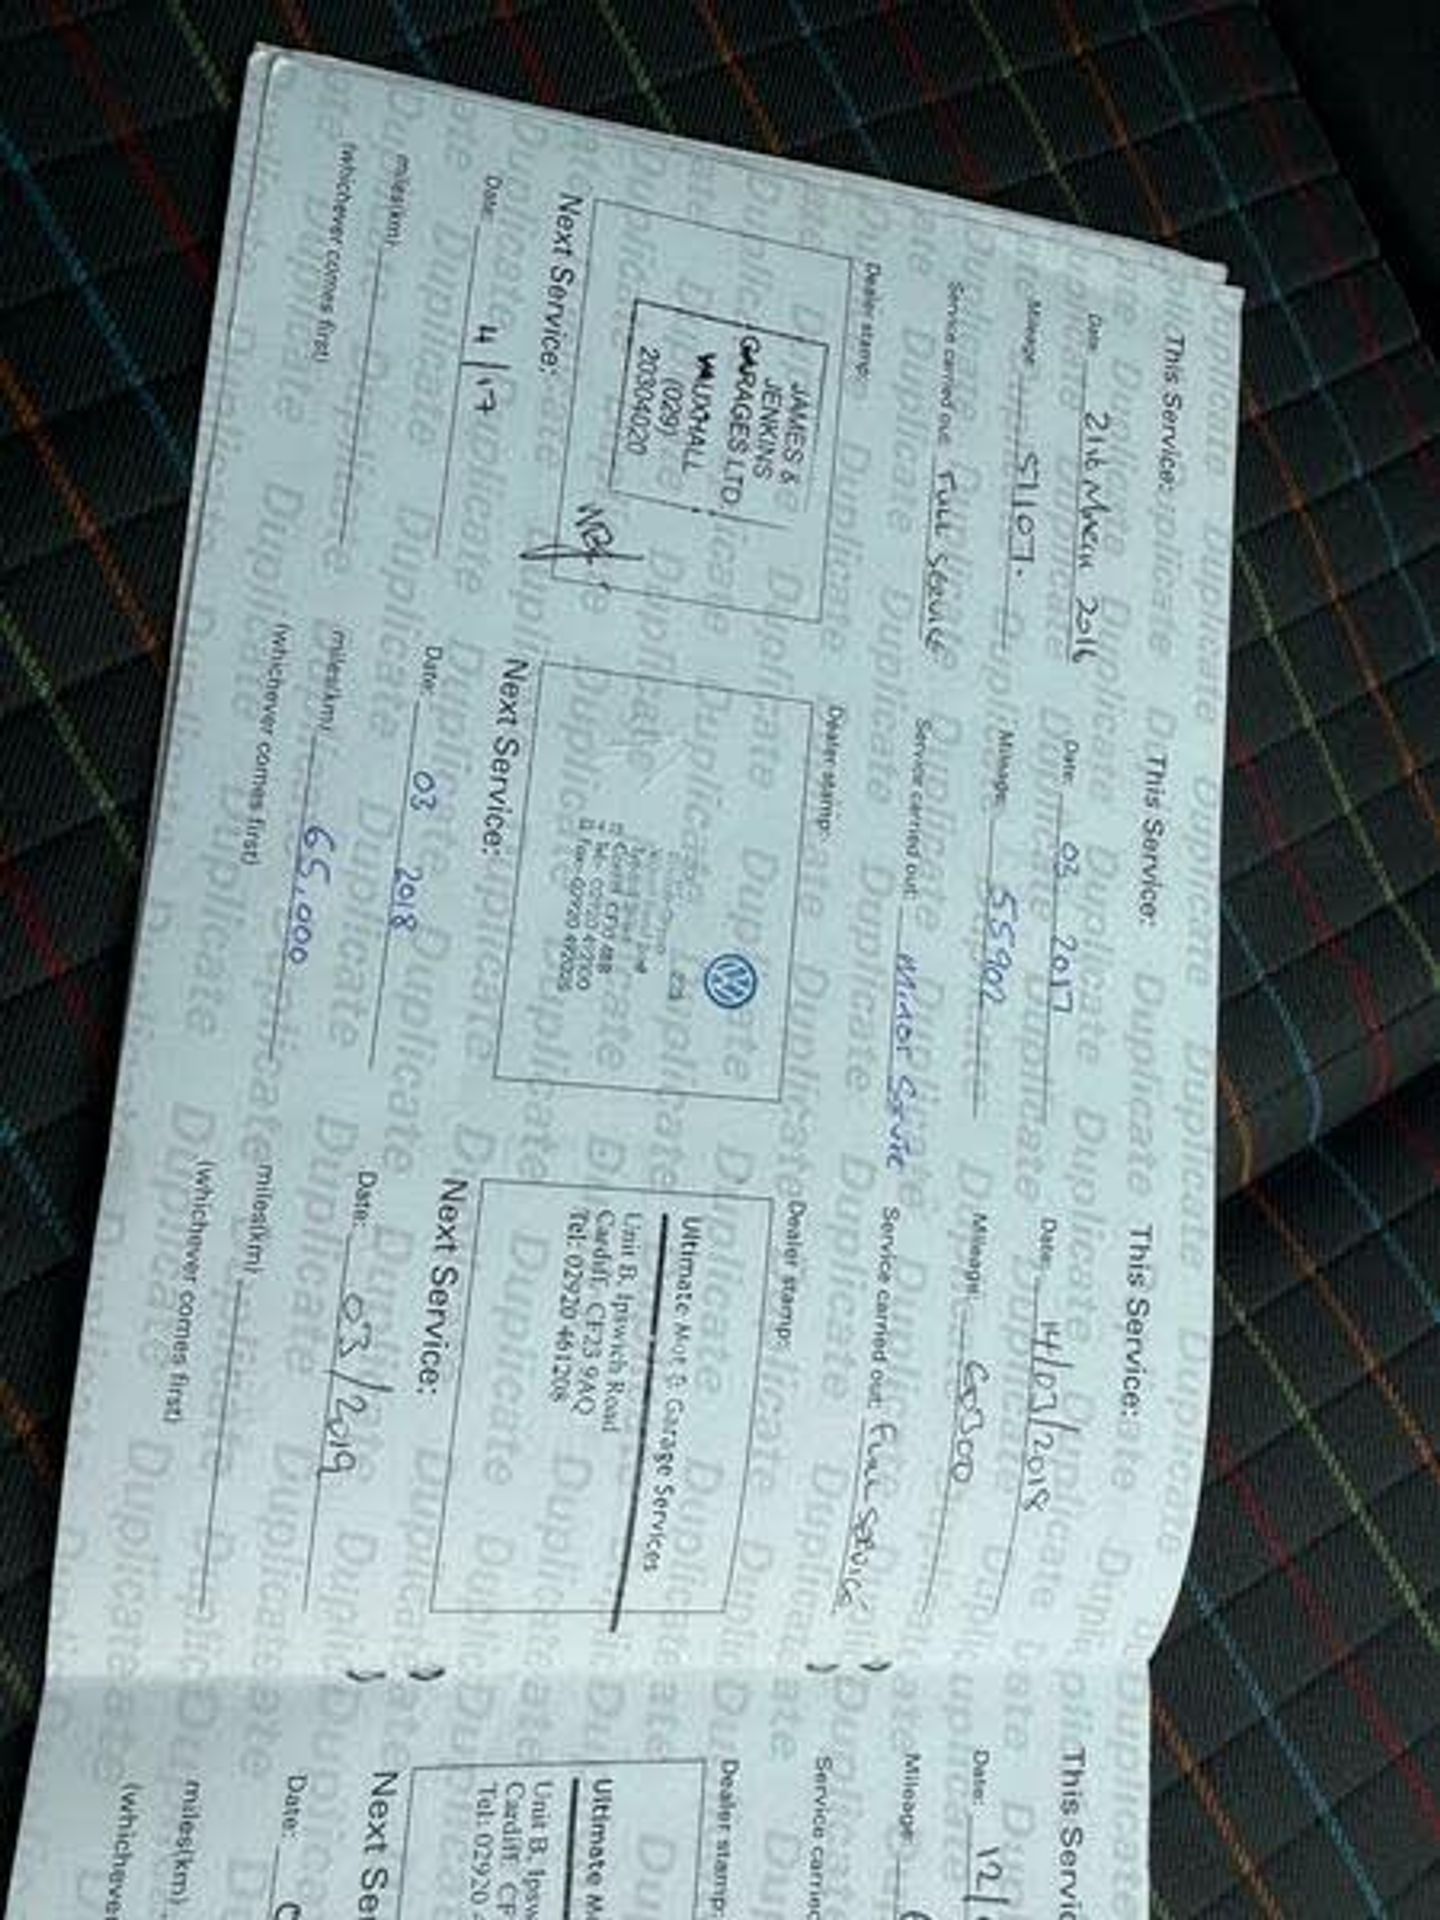 This Service:
Date: 21st March 2016
Mileage: 51107.
Service carried out: Full Service
Dealer stamp:
JAMES &
JENKINS
GARAGES LTD.
VAUXHALL
(029)
20304020
Next Service:
Date: 4/17
miles(km)
(whichever comes first)
This Service:
Date: 03 2017
Mileage: 55902
Service carried out: Minor Service
Dealer stamp:
Next Service:
Date: 03 2018
miles(km) 65,000
(whichever comes first)
This Service:
Date: 14/03/2018
Mileage: 60300
Service carried out: Full Service
Dealer stamp:
Ultimate Mot & Garage Services
Unit B, Ipswich Road
Cardiff, CF23 9AQ
Tel: 02920 461208
Next Service:
Date: 03/2019
miles(km)
(whichever comes first)
This Servic
Date: 12/
Mileage:
Service carried
Dealer stamp:
Ultimate M
Unit B, Ipsw
Cardiff, CF
Tel: 02920
Next Ser
Date:
miles(km)
(whichever
Duplicate